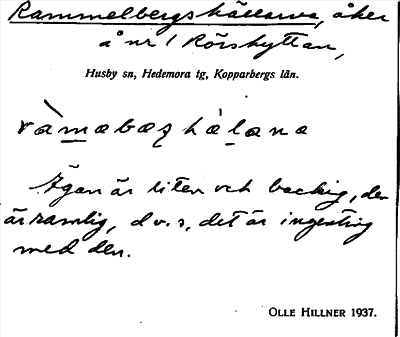 Rammelbergskällarna, åker
å nr 1 Rörshyttan,
Husby sn, Hedemora tg, Kopparbergs län.
ràmabæʒhàlana
Ägan är liten och backig, den
är ramlig, d.v.s. det är ingenting
med den.
OLLE HILLNER 1937.